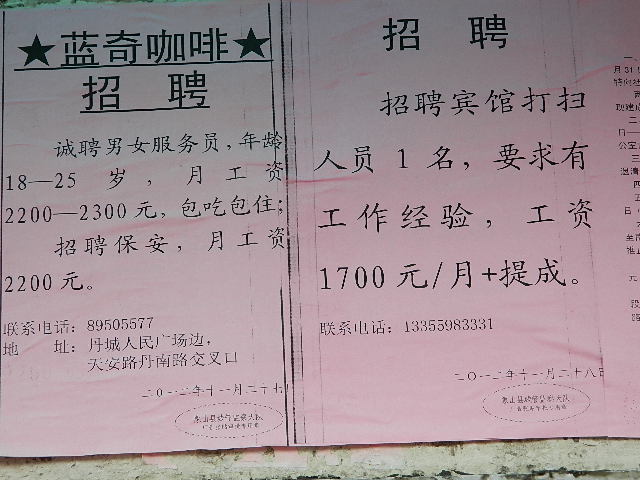 ★蓝奇咖啡★
招 聘
诚聘男女服务员，年龄
18—25 岁，月工资
2200—2300元，包吃包住；
招聘保安，月工资
2200元。
联系电话：89505577
地 址：丹城人民广场边，
天安路丹南路交叉口
二〇一二年十一月二十七
招 聘
招聘宾馆打扫
人员1名，要求有
工作经验，工资
1700元/月+提成。
联系电话：13355983331
二〇一二年十一月二十八日
象山县城管监察大队
象山县城管监察大队
一、
月31
二
日一
公室
三
四
五